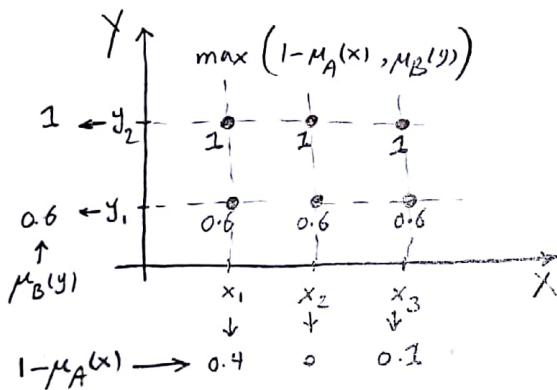 Y
max (1-μ_A(x), μ_B(y))
1 ← y_2
1 1 1
0.6 ← y_1
0.6 0.6 0.6
↑
μ_B(y)
X
x_1 x_2 x_3
↓ ↓ ↓
1-μ_A(x) → 0.4 0 0.1